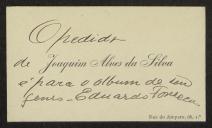 O pedido
de Joaquim Alves da Silva
é para o album de seu
genro - Eduardo Fonseca
Rua do Amparo, 1.º